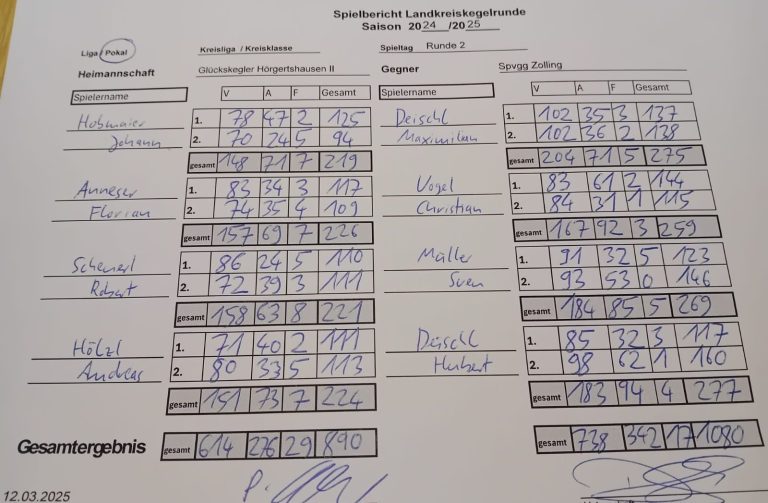 Spielbericht Landkreiskegelrunde
Saison 2024/2025
Liga / Pokal Kreisliga / Kreisklasse Spieltag Runde 2
Heimannschaft Glückskegler Hörgertshausen II Gegner Spvgg Zolling
Spielername V A F Gesamt Spielername V A F Gesamt
Hobmaier 1. 78 47 2 125 Deischl 1. 102 35 3 137
Johann 2. 70 24 5 94 Maximilian 2. 102 36 2 138
gesamt 148 71 7 219 gesamt 204 71 5 275
Anneser 1. 83 34 3 117 Vogel 1. 83 61 2 144
Florian 2. 74 35 4 109 Christian 2. 84 31 1 115
gesamt 157 69 7 226 gesamt 167 92 3 259
Scheuerl 1. 86 24 5 110 Müller 1. 91 32 5 123
Robert 2. 72 39 3 111 Sven 2. 93 53 0 146
gesamt 158 63 8 221 gesamt 184 85 5 269
Hölzl 1. 71 40 2 111 Deischl 1. 85 32 3 117
Andreas 2. 80 33 5 113 Hubert 2. 98 62 1 160
gesamt 151 73 7 224 gesamt 183 94 4 277
Gesamtergebnis gesamt 614 276 29 890 gesamt 738 342 17 1080
12.03.2025